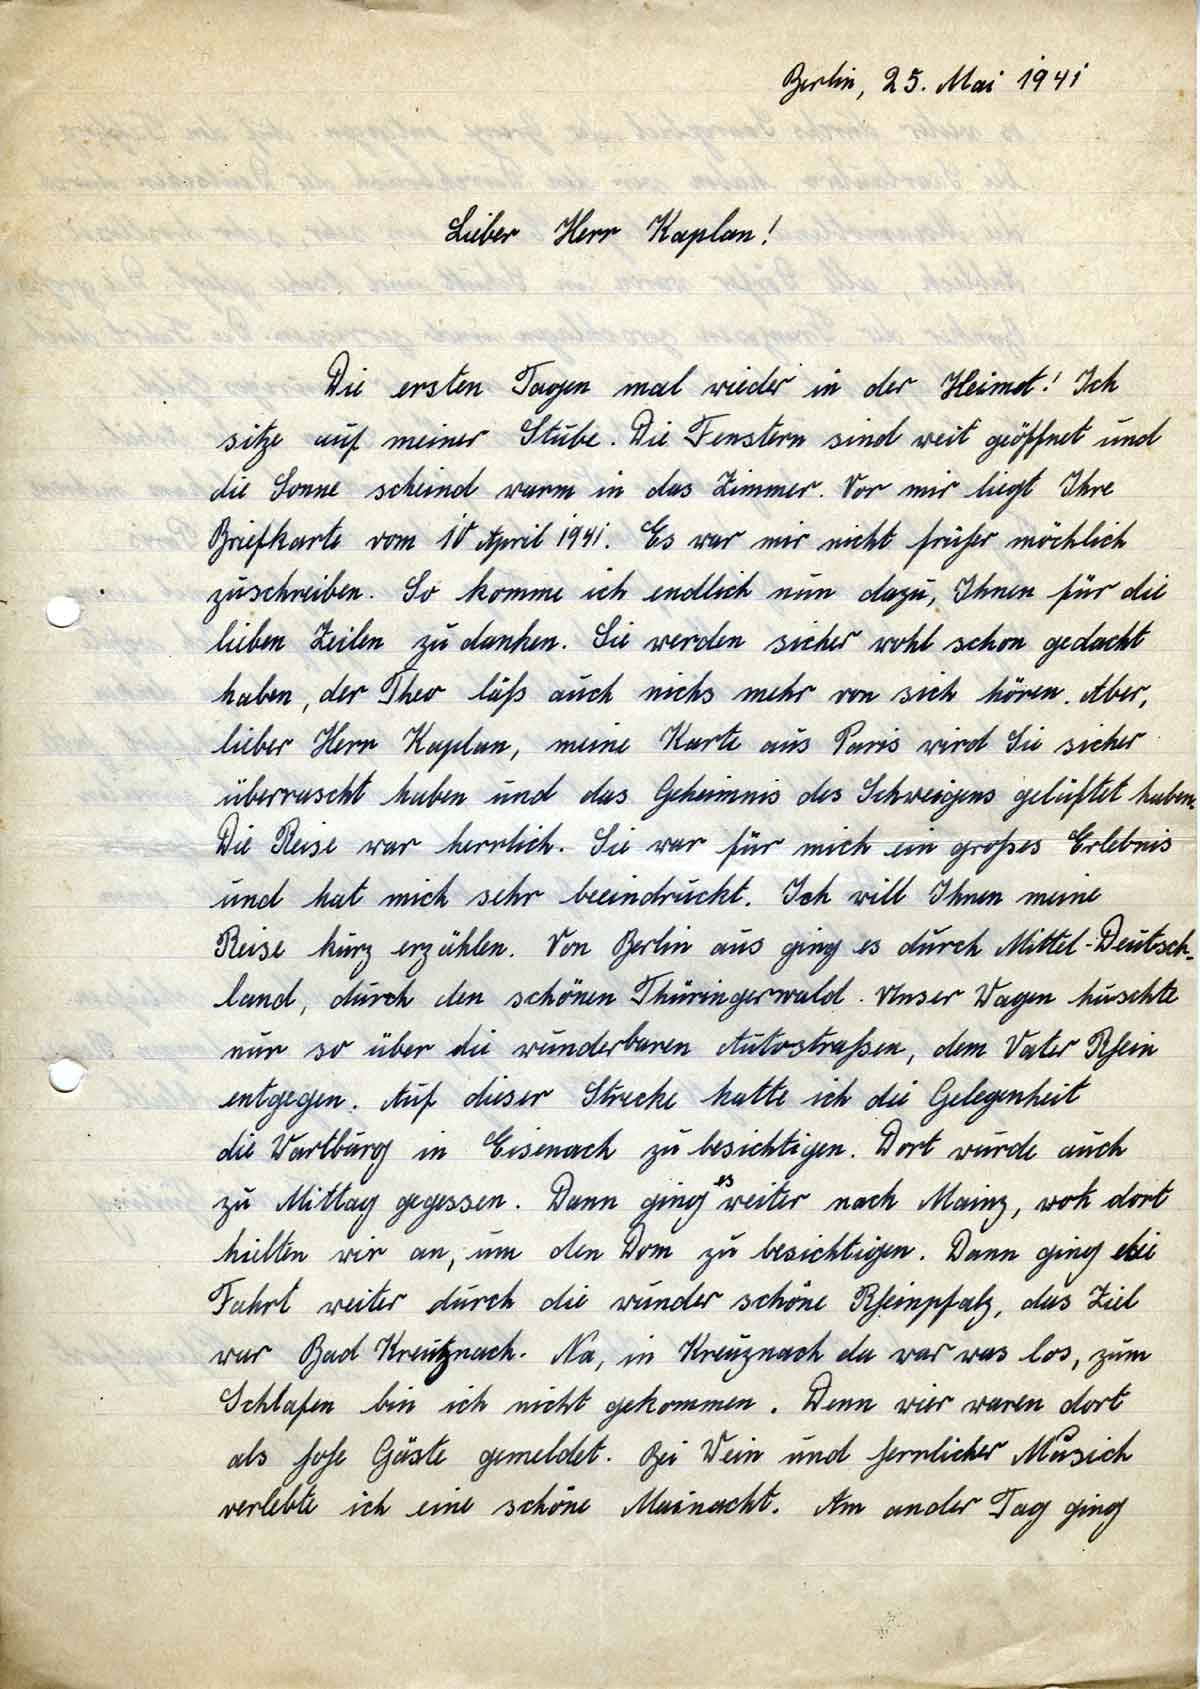 Berlin, 25. Mai 1941
Lieber Herr Kaplan!
Die ersten Tagen mal wieder in der Heimat! Ich
sitze auf meiner Stube. Die Fenstern sind weit geöffnet und
die Sonne scheind warm in das Zimmer. Vor mir liegt Ihre
Briefkarte vom 10 April 1941. Es war mir nicht früher möchlich
zuschreiben. So komme ich endlich nun dazu, Ihnen für die
lieben Zeilen zu danken. Sie werden sicher wohl schon gedacht
haben, der Theo läßs auch nichs mehr von sich hören. Aber,
lieber Herr Kaplan, meine Karte aus Paris wird Sie sicher
überrascht haben und das Geheimnis des Schweigens gelüftet haben.
Die Reise war herrlich. Sie war für mich ein großes Erlebnis
und hat mich sehr beeindruckt. Ich will Ihnen meine
Reise kurz erzählen. Von Berlin aus ging es durch Mittel-Deutsch-
land, durch den schönen Thüringerwald. Unser Wagen huschte
nur so über die wunderbaren Autostraßen, dem Vater Rhein
entgegen. Auf dieser Strecke hatte ich die Gelegenheit
die Wartburg in Eisenach zu besichtigen. Dort wurde auch
zu Mittag gegessen. Dann ging es weiter nach Mainz, woh dort
hielten wir an, um den Dom zu besichtigen. Dann ging die
Fahrt weiter durch die wunder schöne Rheinpfalz, das Ziel
war Bad Kreutznach. Na, in Kreuznach da war was los, zum
Schlafen bin ich nicht gekommen. Denn wier waren dort
als hohe Gäste gemeldet. Bei Wein und herrlicher Musich
verlebte ich eine schöne Mainacht. Am ander Tag ging